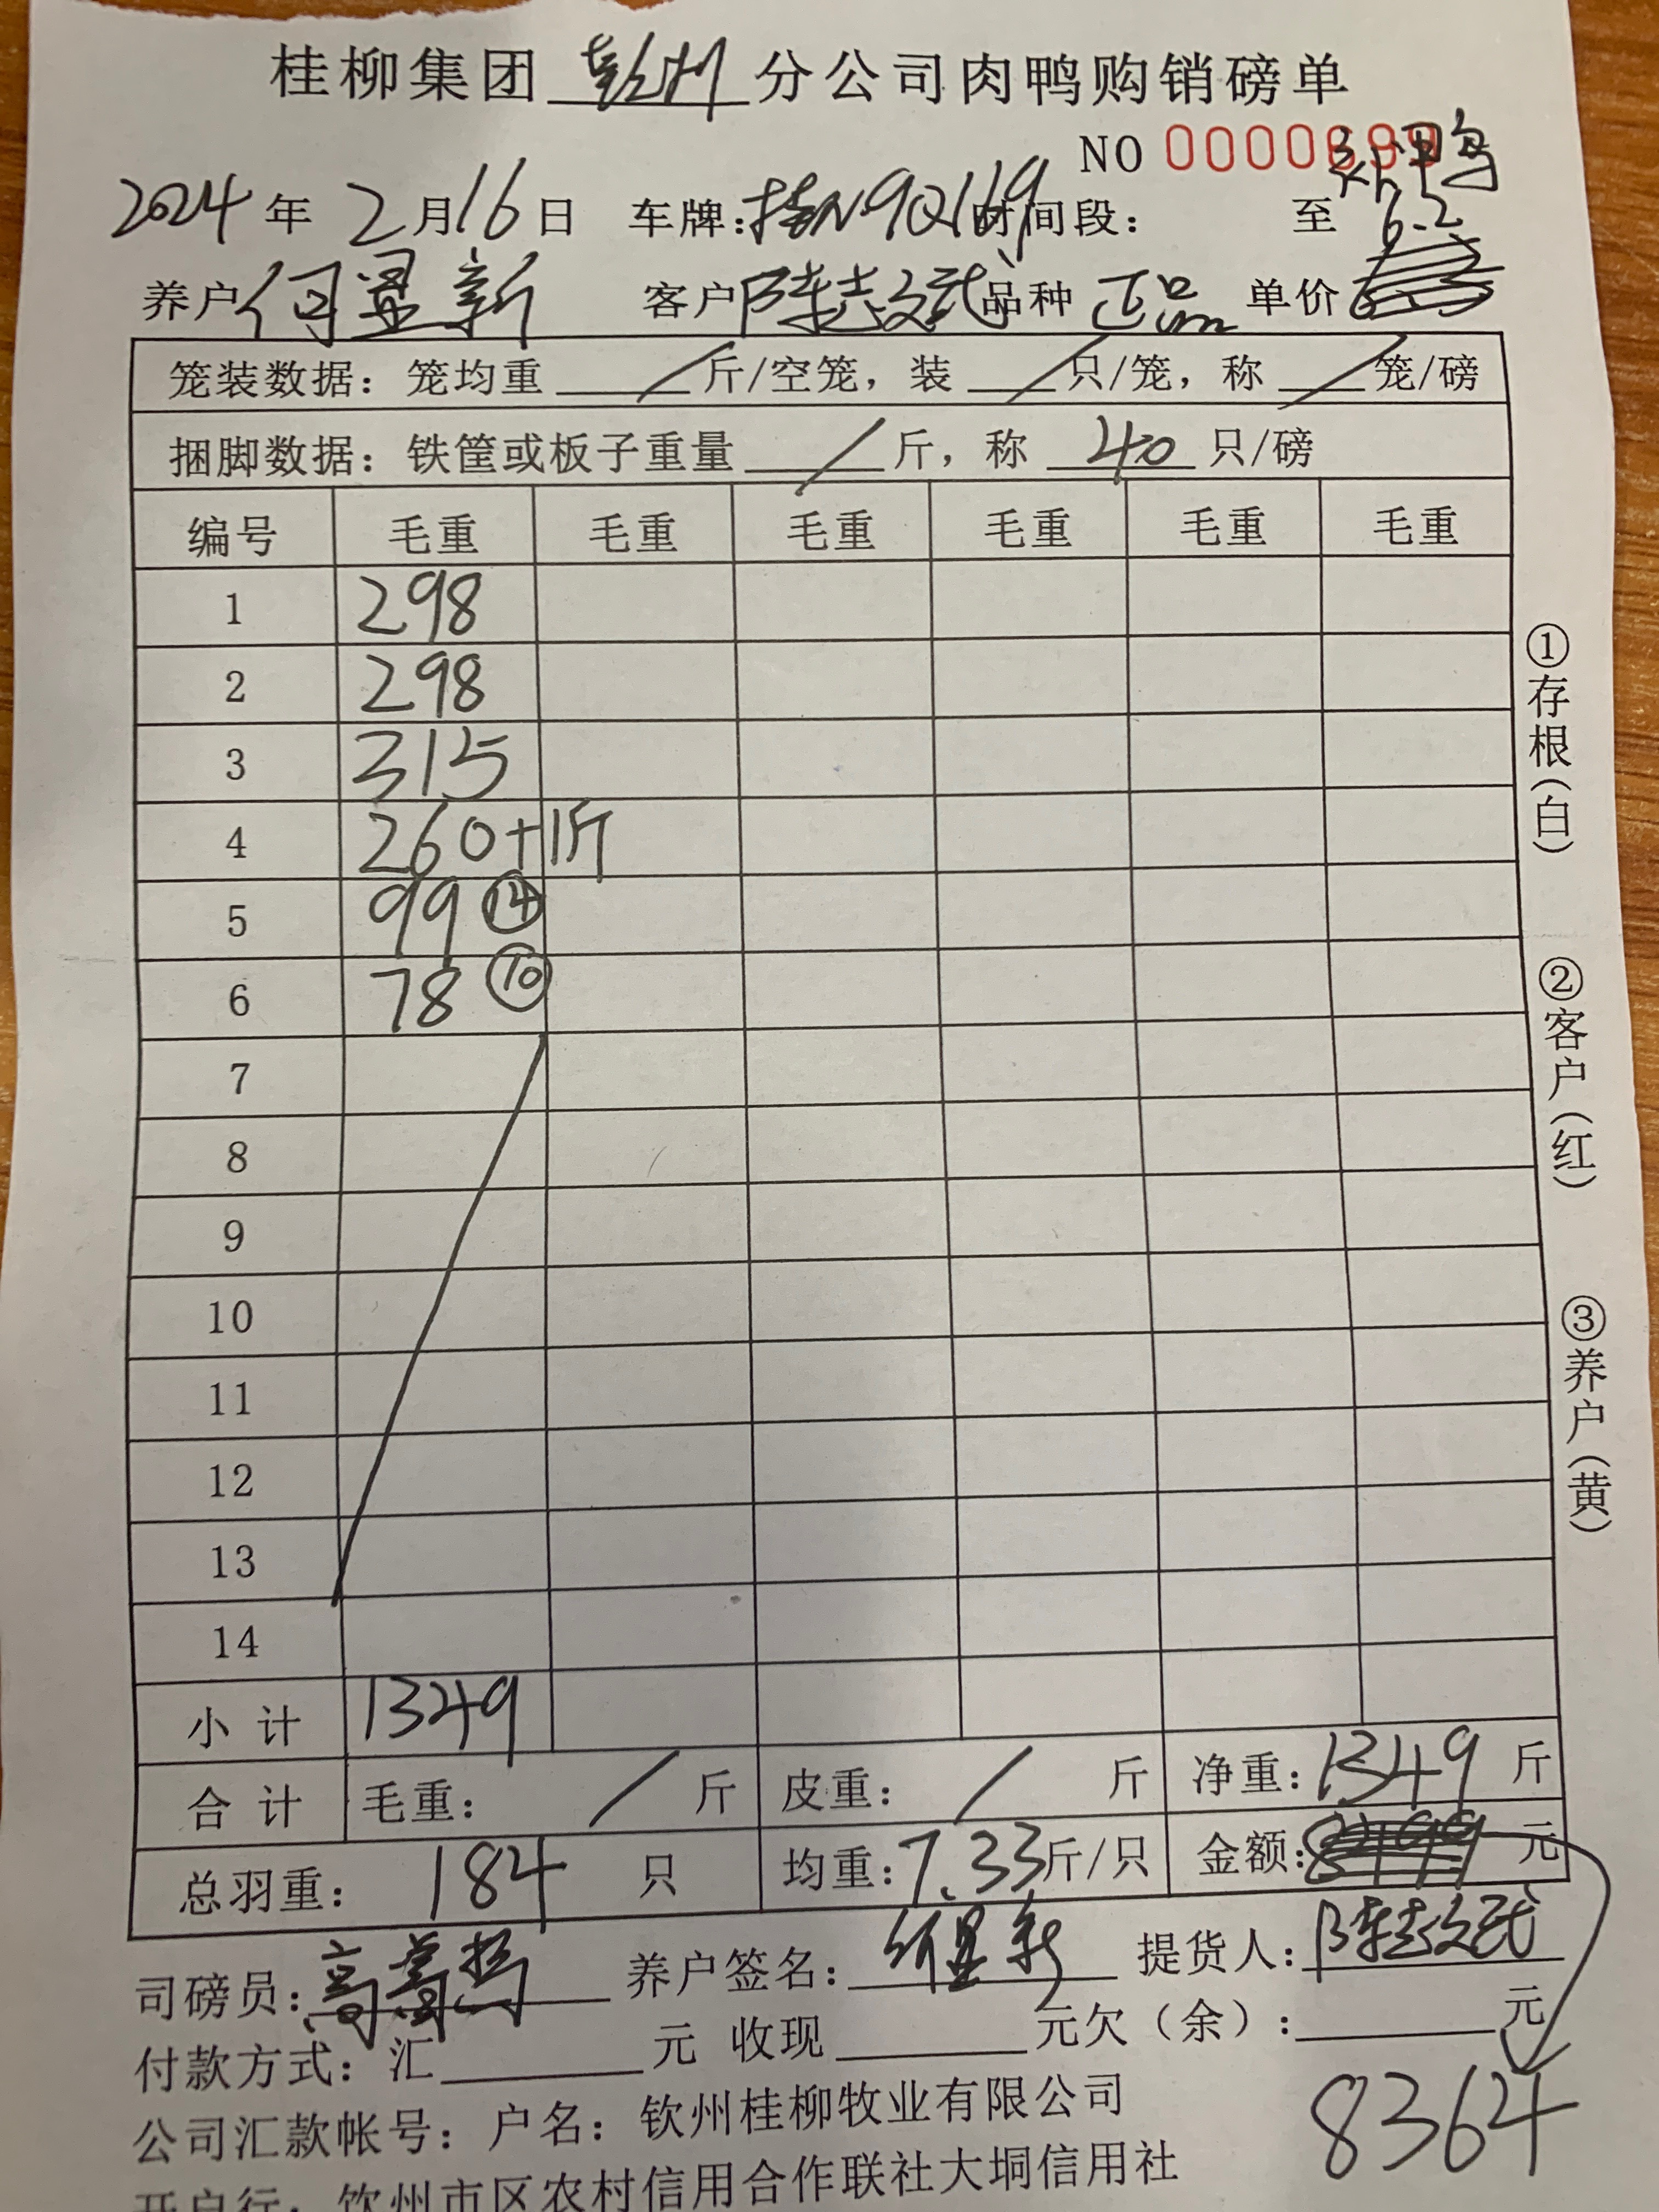 桂柳集团 钦州 分公司肉鸭购销磅单
NO 0000699
2024 年 2 月 16 日 车牌:桂N90169 时间段: 至
6.2
养户 何显新 客户 陈志斌 品种 正品 单价
笼装数据: 笼均重 / 斤/空笼, 装 / 只/笼, 称 / 笼/磅
捆脚数据: 铁筐或板子重量 / 斤, 称 40 只/磅
编号 毛重 毛重 毛重 毛重 毛重 毛重
1 298
2 298
3 315
4 260+1斤
5 99 ⑭
6 78 ⑩
7
8
9
10
11
12
13
14
小计 1349
合计 毛重: / 斤 皮重: / 斤 净重: 1349 斤
总羽重: 184 只 均重: 7.33 斤/只 金额: 元
司磅员: 养户签名: 何显新 提货人: 陈志斌
付款方式: 汇 元 收现 元欠(余): 元
8364
公司汇款帐号: 户名: 钦州桂柳牧业有限公司
开户行: 钦州市区农村信用合作联社大垌信用社
①存根(白)
②客户(红)
③养户(黄)